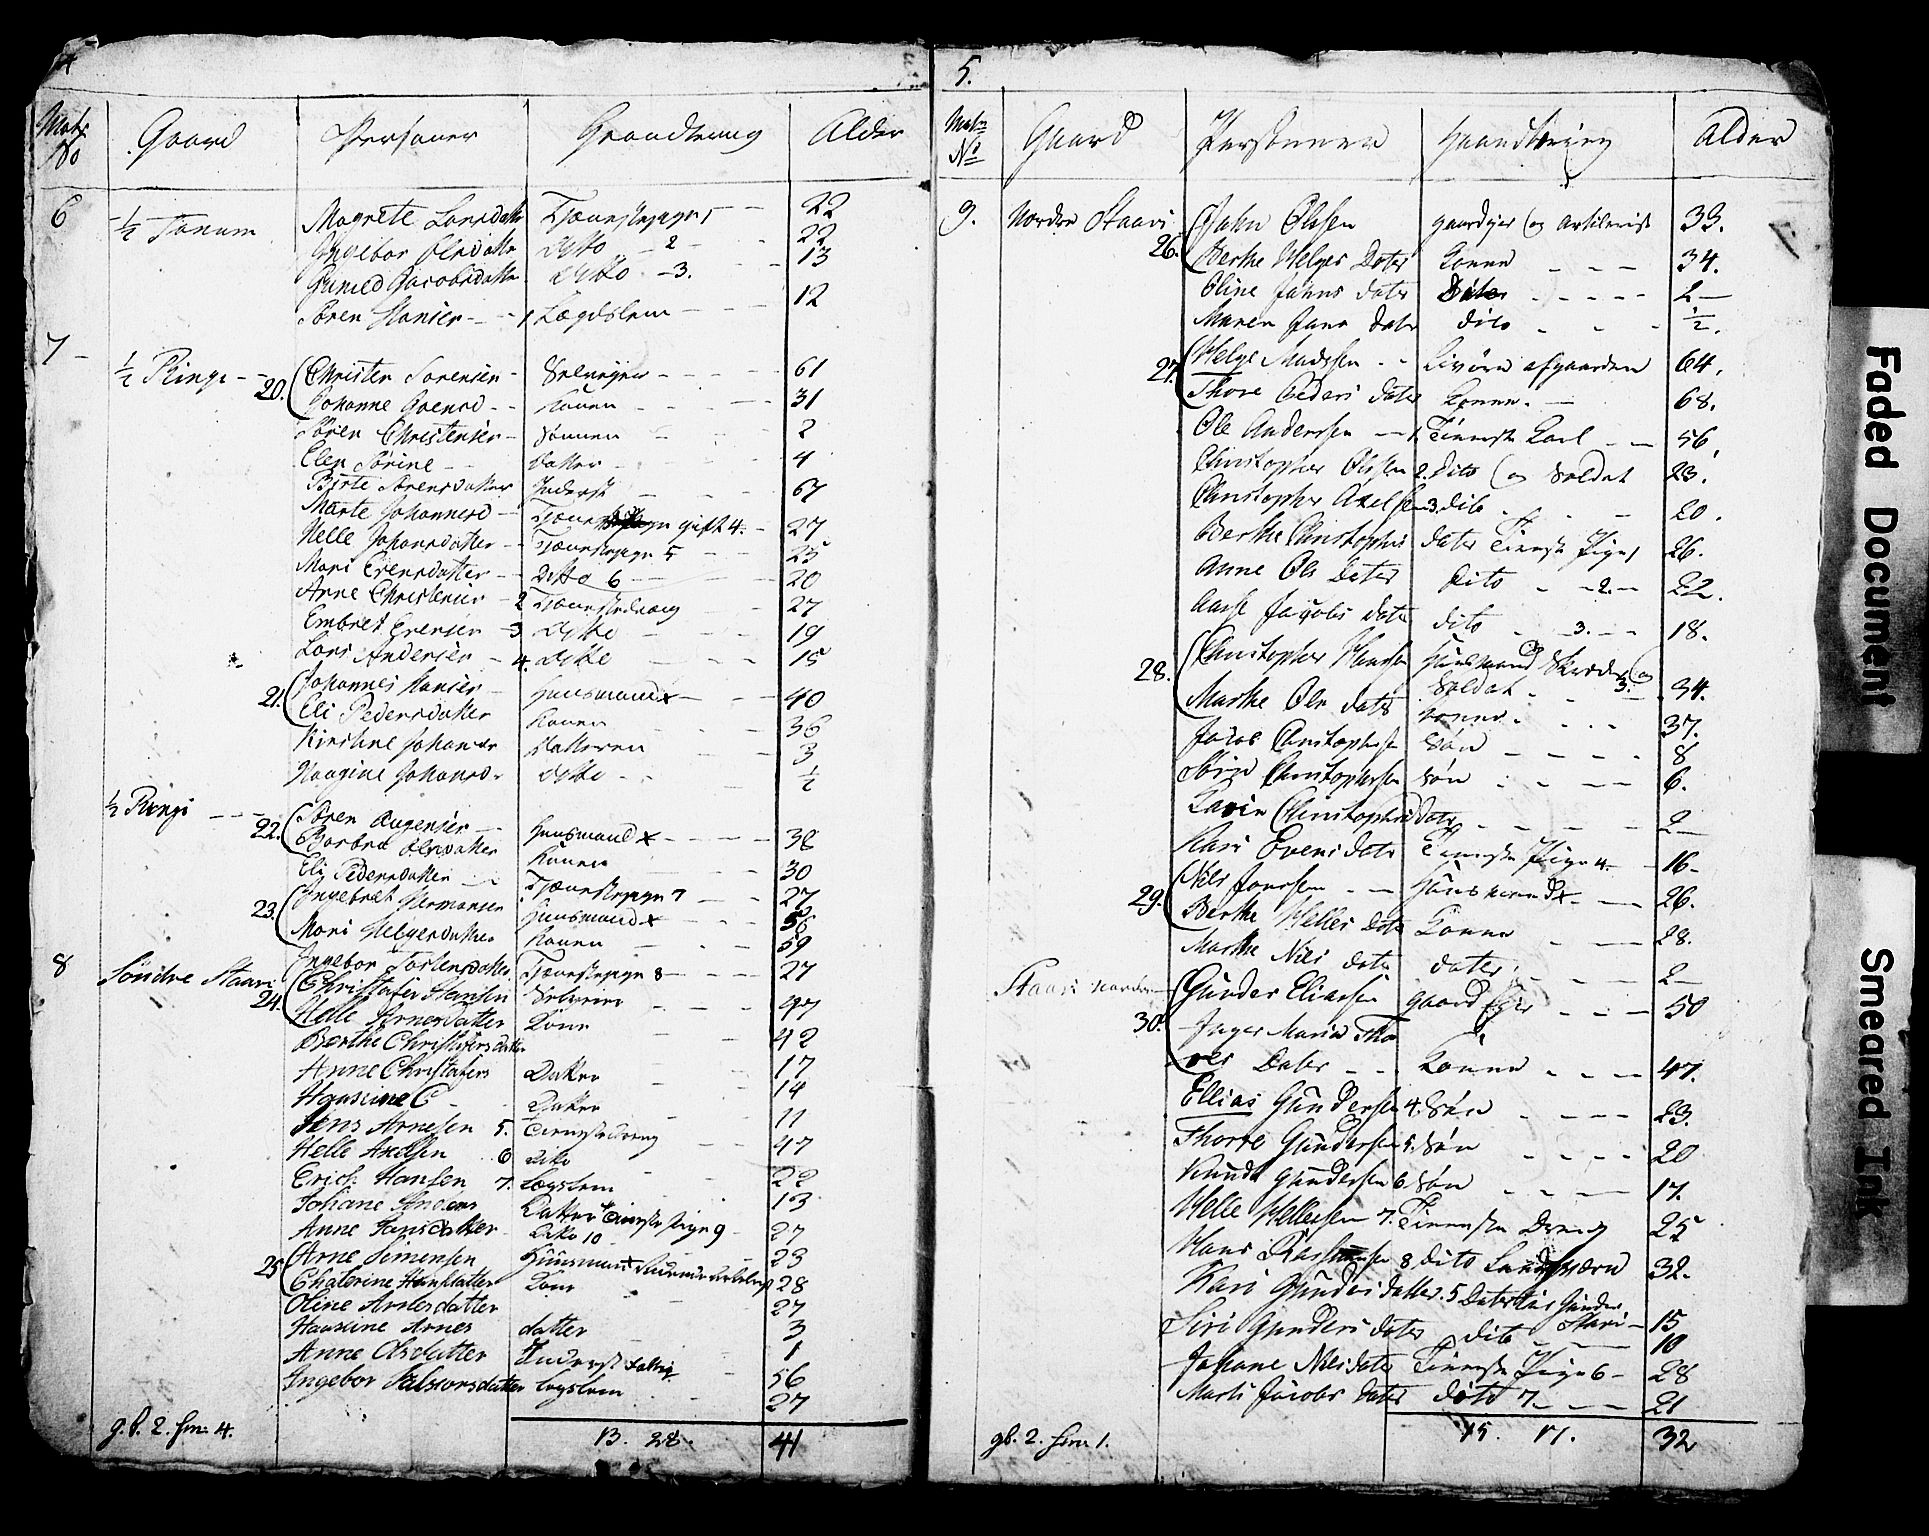 4
Matr No Gaard Personer Haandtering Alder
6 ½ Tanum Magnete Larsdatter Tjænestepige 1 22
Ingebor Olesdatter Ditto 2 22
Gunild Jacobsdatter Ditto 3. 13
Søren Hansen 1 Lægdslem 12
7 ½ Ringi 20. Christen Sørensen Selveiger 61
Johanne Gaensd Konen 31
Søren Christensen Sønnen 2
Elen Sørine datter 4
Birte Sørensdatter Inderst 67
Marte Johannesd Tjænestepige gift 4. 27
Helle Johansdatter Tjænestepige 5 25
Mari Evensdatter Ditto 6 20
Arne Christensen 2 Tjænstedreng 27
Embret Evensen 3 Ditto 19
Lars Andersen 4. Ditte 15
21. Johannes Hansen Huusmand x 40
Eli Pedersdatter Konen 36
Kirstine Johansdr Datteren 3
Haagine Johansd. ditto ½
½ Ringi 22. Søren Augensen Huusmand x 38
Barbra Olesdatter Konen 30
Eli Pedersdatter Tjænestepige 7 27
23. Ingebret Hermansen Huusmand x 58
Mari Helgesdatter Konen 59
Ingebor Torstensdatter Tjænestepige 8 27
8 Søndre Staavi 24. Christafer Hansen Selveier 47
Helle Arnesdatter Kone 42
Berthe Christafersdatter
Anne Christafers Datter 17
Hansine C Datter 14
Jens Arnesen 5. Tienstedreng 11
Helle Axelsen 6 Dito 47
Erich Hansen 7. Legslem 22
Johane Anders Datter Tieneste pige 9 13
Anne Hansdatter Dito 10 27
25 Arne Simensen Huusmand x 23
Chatrine Hansdatter Kone 28
Oline Arnesdatter 27
Hansine Arnes datter 3
Anne Olsdatter Inderst Fattig 1
Ingebor Halvorsdatter Legslem 56
27
g.b. 2. hm. 4. 13. 28. 41
5.
Matr No Gaard Personner Haandtering Alder
9. Nordre Staavi 26. Jahn Olsen gaardejer og Artilerist 33.
Berthe Helges Dater Konne 34.
Oline Jahns dater Dater 2
Maren Jans dater dito ½.
27. Helge Madssen Livøre af gaarden 64.
Thore Peders dater Konne. 68.
Ole Anderssen 1. Tieneste Karl 56
Christopher Olssen 2. Dito og Soldat 23.
Christopher Axelsen 3. dito 20.
Berthe Christophers dater Tieneste Pige 1 26.
Anne Ols Dater Dito 2. 22.
Aase Jacobs dater dito 3. 18.
28. Christopher Hansen Huusmand Skreder og Soldat 3. 34.
Marthe Ols dater Konne. 37.
Jacob Christophersen Søn 8
Christophersen Søn 6.
Karin Christophersdater 2
Kari Evens dater Tieneste Pige 4. 16
29. Nils Janssen Huusmand x 26.
Berthe Helles Dater Konne 28.
Marthe Nils dater dater 2
Staavi nordre 30. Gunder Eliassen gaard Ejer 50
Inger Maria Tho
res Dater Konne 47.
Ellias Gundersen 4. Søn 23.
Thorre Gundersen 5. Søn 20
Knudt Gundersen 6 Søn 17.
Helle Hellessen 7. Tieneste Dreng 25
Hans Rassmussen 8 dito Landtværn 32.
Kari Gunders datter. 5 Dater til Gunder Stavi 15
Siri Gunders dater dito 10
Johane Nilsdater Tieneste Pige 6 28
Marte Jacobs dater dito 7 21
gb. 2. hm 1. 15. 17. 32
Faded Document
Smeared Ink